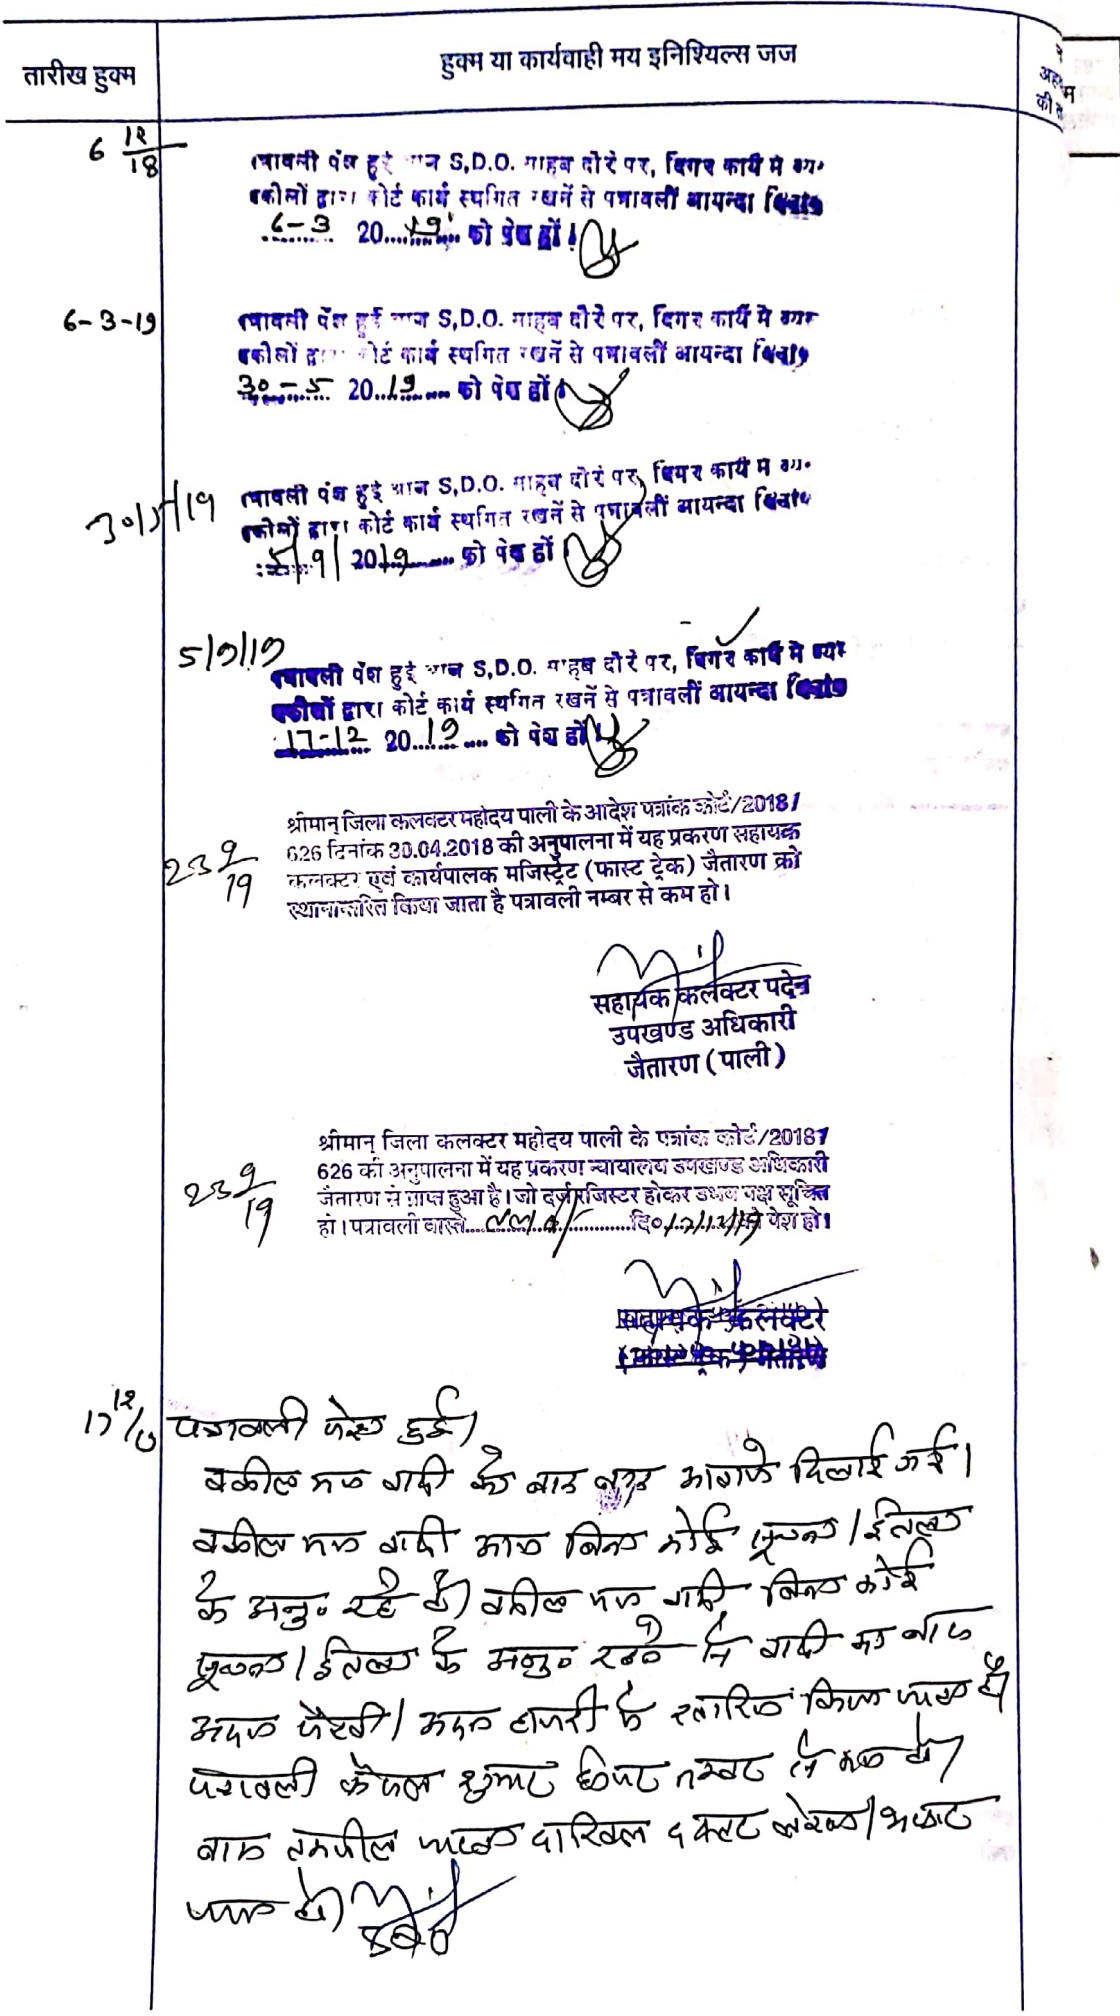 तारीख हुक्म
हुक्म या कार्यवाही मय इनिश्यिल्स जज
अह
म
की
6 12/18
पत्रावली पेश हुई आज S.D.O. साहब दौरे पर, दिगर कार्य मे
वकीलों द्वारा कोर्ट कार्य स्थगित रखनें से पत्रावलीं आयन्दा दिनांक
6-3 20 19 को पेश हों।
6-3-19
पत्रावली पेश हुई आज S.D.O. साहब दौरे पर, दिगर कार्य मे
वकीलों द्वारा कोर्ट कार्य स्थगित रखनें से पत्रावलीं आयन्दा दिनांक
30-5 20 19 को पेश हों।
30/5/19
पत्रावली पेश हुई आज S.D.O. साहब दौरे पर, दिगर कार्य मे
वकीलों द्वारा कोर्ट कार्य स्थगित रखनें से पत्रावलीं आयन्दा दिनांक
5/9/ 2019 को पेश हों
5/9/19
पत्रावली पेश हुई आज S.D.O. साहब दौरे पर, दिगर कार्य मे
वकीलों द्वारा कोर्ट कार्य स्थगित रखनें से पत्रावलीं आयन्दा दिनांक
17-12 20 19 को पेश हों।
श्रीमान् जिला कलक्टर महोदय पाली के आदेश पत्रांक कोर्ट/2018/
23 9/19
626 दिनांक 30.04.2018 की अनुपालना में यह प्रकरण सहायक
कलक्टर एवं कार्यपालक मजिस्ट्रेट (फास्ट ट्रेक) जैतारण को
स्थानान्तरित किया जाता है पत्रावली नम्बर से कम हो।
सहायक कलक्टर पदेन
उपखण्ड अधिकारी
जैतारण (पाली)
श्रीमान् जिला कलक्टर महोदय पाली के पत्रांक कोर्ट/2018/
23 9/19
626 की अनुपालना में यह प्रकरण न्यायालय उपखण्ड अधिकारी
जैतारण से प्राप्त हुआ है। जो दर्ज रजिस्टर होकर उभय पक्ष सूचित
हो। पत्रावली वास्ते दि० 17/12/19 को पेश हो।
सहायक कलक्टर
(फास्ट ट्रेक) जैतारण
17 12/19 पत्रावली पेश हुई।
वकील वादी को बार बार आवाजे दिलाई गई।
वकील वादी आज बिना कोई सूचना / ईतला
के अनु० रहे है। वकील वादी बिना कोई
सूचना / ईतला के अनु० रहने से वादी का वाद
अदम पैरवी / अदम हाजरी मे खारिज किया जाता है।
पत्रावली फैसल शुमार होकर नम्बर से कम हो।
बाद तकमील दाखिल दफ्तर
जावे।